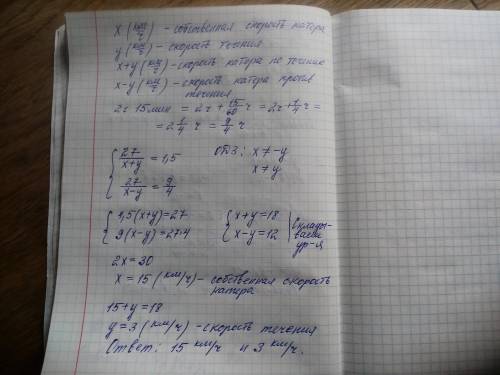 x (км/ч) - собственная скорость катера
y (км/ч) - скорость течения
x+y (км/ч) - скорость катера по течению
x-y (км/ч) - скорость катера против
течения
2ч 15мин = 2ч + 15/60 ч = 2ч + 1/4 ч =
= 2 1/4 ч = 9/4 ч
{ 27/(x+y) = 1,5 ОДЗ: x ≠ -y
{ 27/(x-y) = 9/4 x ≠ y
{ 1,5(x+y)=27 { x+y=18 | Склады-
{ 9(x-y)=27·4 { x-y=12 | ваем
ур-я
2x = 30
x = 15 (км/ч) - собственная скорость
катера
15+y=18
y=3 (км/ч) - скорость течения
Ответ: 15 км/ч и 3 км/ч.